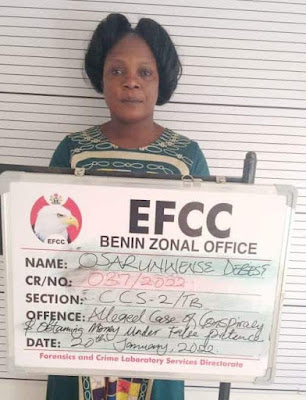 EFCC
EFCC
BENIN ZONAL OFFICE
NAME: OSARUNWENSE DEBEST
CR/NO: 037/2022
SECTION: CCS-2/TB
OFFENCE: Alleged Case of Conspiracy
& Obtaining Money Under False Pretence
DATE: 20th January, 2022
Forensics and Crime Laboratory Services Directorate